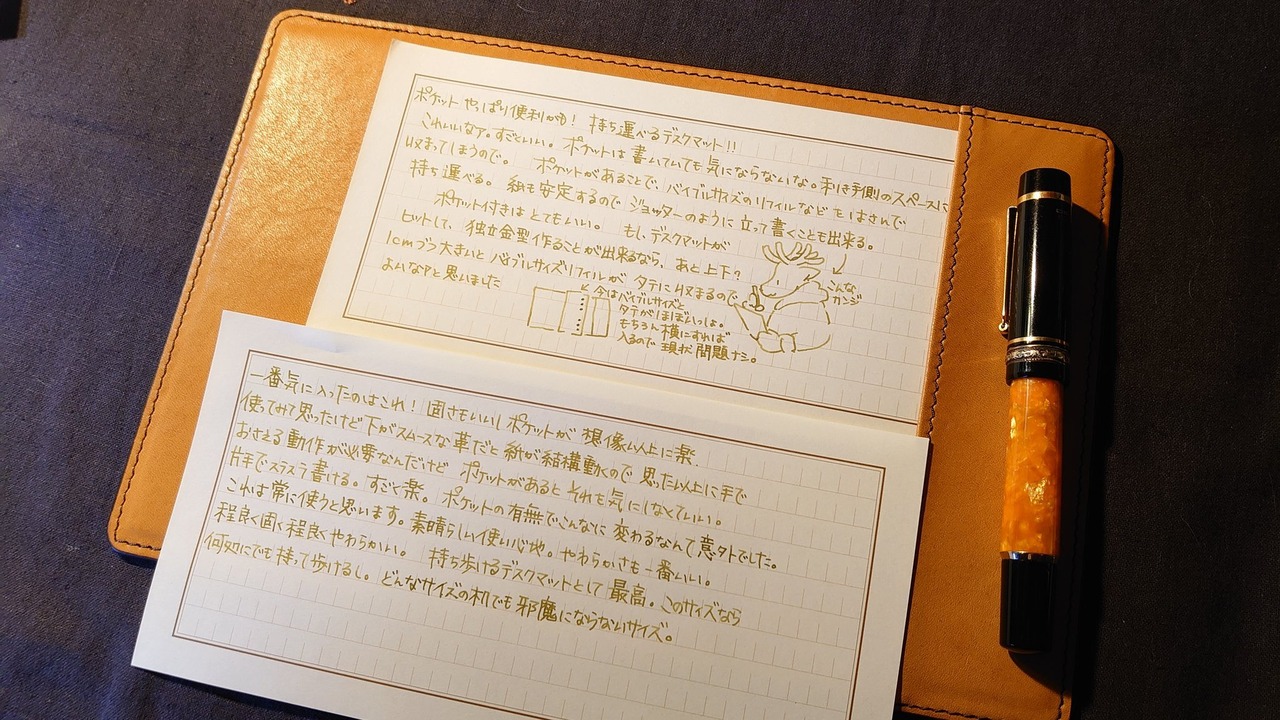 ポケット やっぱり便利かも! 持ち運べるデスクマット!!
これいいなァ。すごくいい。ポケットは書いていても気にならないな。利き手側のスペースに
収まってしまうので。 ポケットがあることで、バイブルサイズのリフィルなどをはさんで
持ち運べる。紙も安定するので ジョッターのように立って書くことも出来る。
ポケット付きは とてもいい。 もし、デスクマットが
ヒットして、独立金型作ることが出来るなら、あと上下?
1cmづつ大きいと バイブルサイズリフィルが タテに収まるので
よいなァと思いました
こんな
カンジ
今はバイブルサイズと
タテがほぼいっしょ。
もちろん横にすれば
入るので 現状問題ナシ。
一番気に入ったのはこれ! 固さもいいしポケットが 想像以上に楽
使ってみて思ったけど下がスムースな革だと紙が結構動くので 思った以上に手で
おさえる動作が必要なんだけど ポケットがあると それを気にしなくていい。
片手でスラスラ書ける。すごく楽。ポケットの有無でこんなに変わるなんて意外でした。
これは常に使うと思います。素晴らしい使い心地。やわらかさも一番いい。
程良く固く程良くやわらかい。 持ち歩けるデスクマットとして 最高。このサイズなら
何処にでも持って歩けるし。どんなサイズの机でも邪魔にならないサイズ。